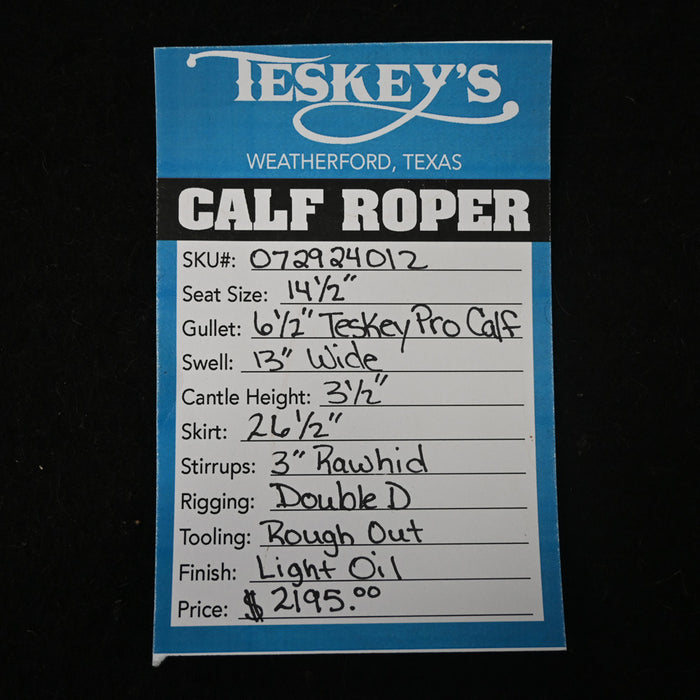 TESKEY'S
WEATHERFORD, TEXAS
CALF ROPER
SKU#: 072924012
Seat Size: 14 1/2"
Gullet: 6 1/2" Teskey Pro Calf
Swell: 13" Wide
Cantle Height: 3 1/2"
Skirt: 26 1/2"
Stirrups: 3" Rawhid
Rigging: Double D
Tooling: Rough Out
Finish: Light Oil
Price: $ 2195.00